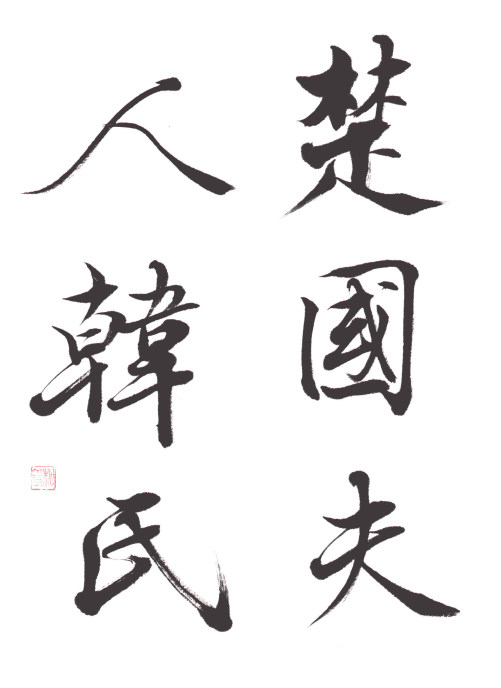 楚國夫
人韓民